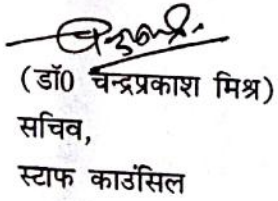 (डॉ0 चन्द्रप्रकाश मिश्र)
सचिव,
स्टाफ काउंसिल